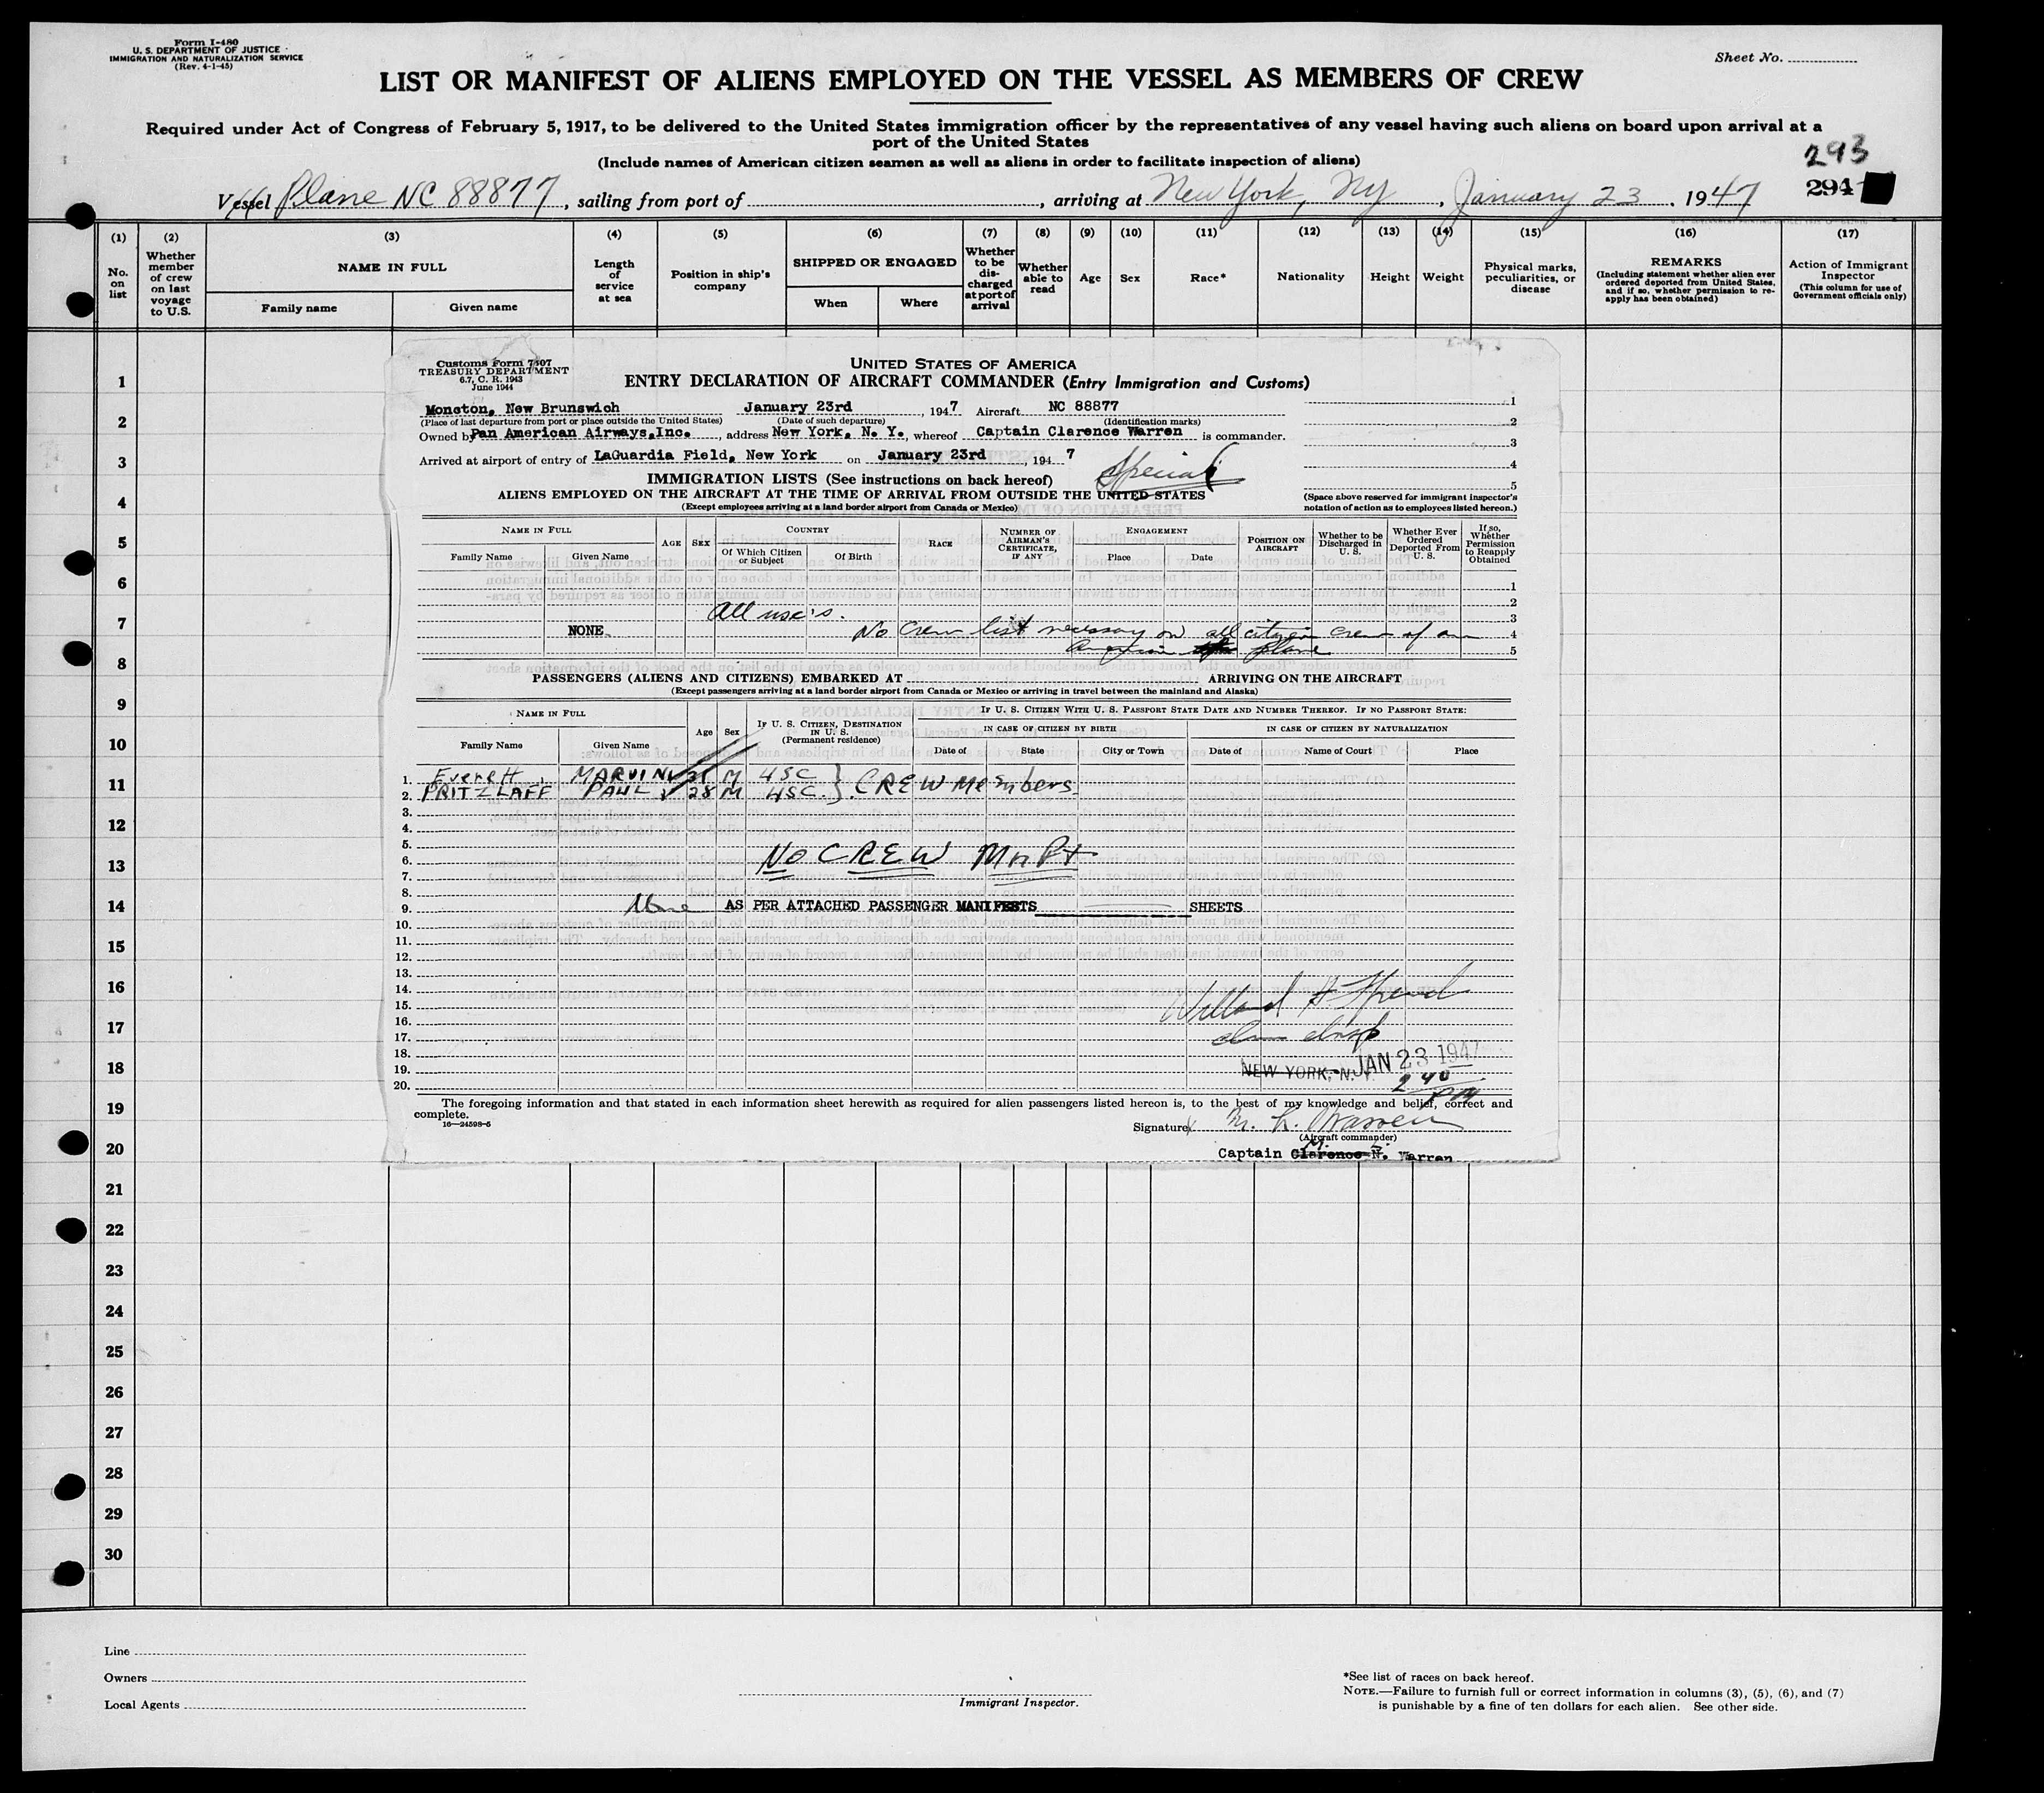 Form I-480
U. S. DEPARTMENT OF JUSTICE
IMMIGRATION AND NATURALIZATION SERVICE
(Rev. 4-1-45)
Sheet No.
LIST OR MANIFEST OF ALIENS EMPLOYED ON THE VESSEL AS MEMBERS OF CREW
Required under Act of Congress of February 5, 1917, to be delivered to the United States immigration officer by the representatives of any vessel having such aliens on board upon arrival at a
port of the United States
(Include names of American citizen seamen as well as aliens in order to facilitate inspection of aliens)
293
294
Vessel Plane NC 88877, sailing from port of , arriving at New York, NY, January 23, 1947
(1) (2) (3) (4) (5) (6) (7) (8) (9) (10) (11) (12) (13) (14) (15) (16) (17)
No. on list
Whether member of crew on last voyage to U.S.
NAME IN FULL
Family name
Given name
Length of service at sea
Position in ship's company
SHIPPED OR ENGAGED
When
Where
Whether to be discharged at port of arrival
Whether able to read
Age
Sex
Race*
Nationality
Height
Weight
Physical marks, peculiarities, or disease
REMARKS
(Including statement whether alien ever ordered deported from United States, and if so, whether permission to reapply has been obtained)
Action of Immigrant Inspector
(This column for use of Government officials only)
Customs Form 7507
TREASURY DEPARTMENT
6.7, C. R. 1943
June 1944
UNITED STATES OF AMERICA
ENTRY DECLARATION OF AIRCRAFT COMMANDER (Entry Immigration and Customs)
Moncton, New Brunswich January 23rd, 1947 Aircraft NC 88877
(Place of last departure from port or place outside the United States) (Date of such departure) (Identification marks)
Owned by Pan American Airways, Inc., address New York, N. Y., whereof Captain Clarence Warren is commander.
Arrived at airport of entry of LaGuardia Field, New York on January 23rd, 1947
Special
1
2
3
4
5
IMMIGRATION LISTS (See instructions on back hereof)
ALIENS EMPLOYED ON THE AIRCRAFT AT THE TIME OF ARRIVAL FROM OUTSIDE THE UNITED STATES
(Except employees arriving at a land border airport from Canada or Mexico)
(Space above reserved for immigrant inspector's notation of action as to employees listed hereon.)
NAME IN FULL
Family Name
Given Name
AGE
SEX
COUNTRY
Of Which Citizen or Subject
Of Birth
RACE
NUMBER OF AIRMAN'S CERTIFICATE, IF ANY
ENGAGEMENT
Place
Date
POSITION ON AIRCRAFT
Whether to be Discharged in U. S.
Whether Ever Ordered Deported From U. S.
If so, Whether Permission to Reapply Obtained
1
2
All usc's. 3
NONE No crew list necessary on all citizen crew of an 4
American plane 5
PASSENGERS (ALIENS AND CITIZENS) EMBARKED AT ARRIVING ON THE AIRCRAFT
(Except passengers arriving at a land border airport from Canada or Mexico or arriving in travel between the mainland and Alaska)
NAME IN FULL
Family Name
Given Name
Age
Sex
IF U. S. CITIZEN, DESTINATION IN U. S.
(Permanent residence)
IF U. S. CITIZEN WITH U. S. PASSPORT STATE DATE AND NUMBER THEREOF. IF NO PASSPORT STATE:
IN CASE OF CITIZEN BY BIRTH
Date of
State
City or Town
IN CASE OF CITIZEN BY NATURALIZATION
Date of
Name of Court
Place
1. Everett, MARVIN 31 M USC } CREW Members
2. PRITZLAFF PAUL 28 M USC.
3.
4.
5.
6. NO CREW
7.
8.
9. None AS PER ATTACHED PASSENGER MANIFESTS SHEETS
10.
11.
12.
13.
14.
15.
16.
17.
18.
19. NEW YORK, N.Y. JAN 23 1947
20. 2 40 PM
The foregoing information and that stated in each information sheet herewith as required for alien passengers listed hereon is, to the best of my knowledge and belief, correct and
complete.
16—24598-5
Signature M. L. Warren
(Aircraft commander)
M. L.
Captain Clarence N. Warren
1
2
3
4
5
6
7
8
9
10
11
12
13
14
15
16
17
18
19
20
21
22
23
24
25
26
27
28
29
30
Line
Owners
Local Agents
Immigrant Inspector.
*See list of races on back hereof.
NOTE.—Failure to furnish full or correct information in columns (3), (5), (6), and (7)
is punishable by a fine of ten dollars for each alien. See other side.